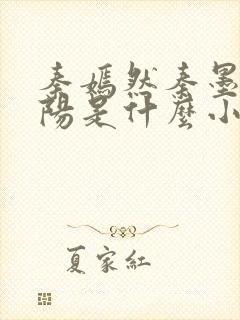 秦嫣然秦墨
陽是什麼小
夏家紅